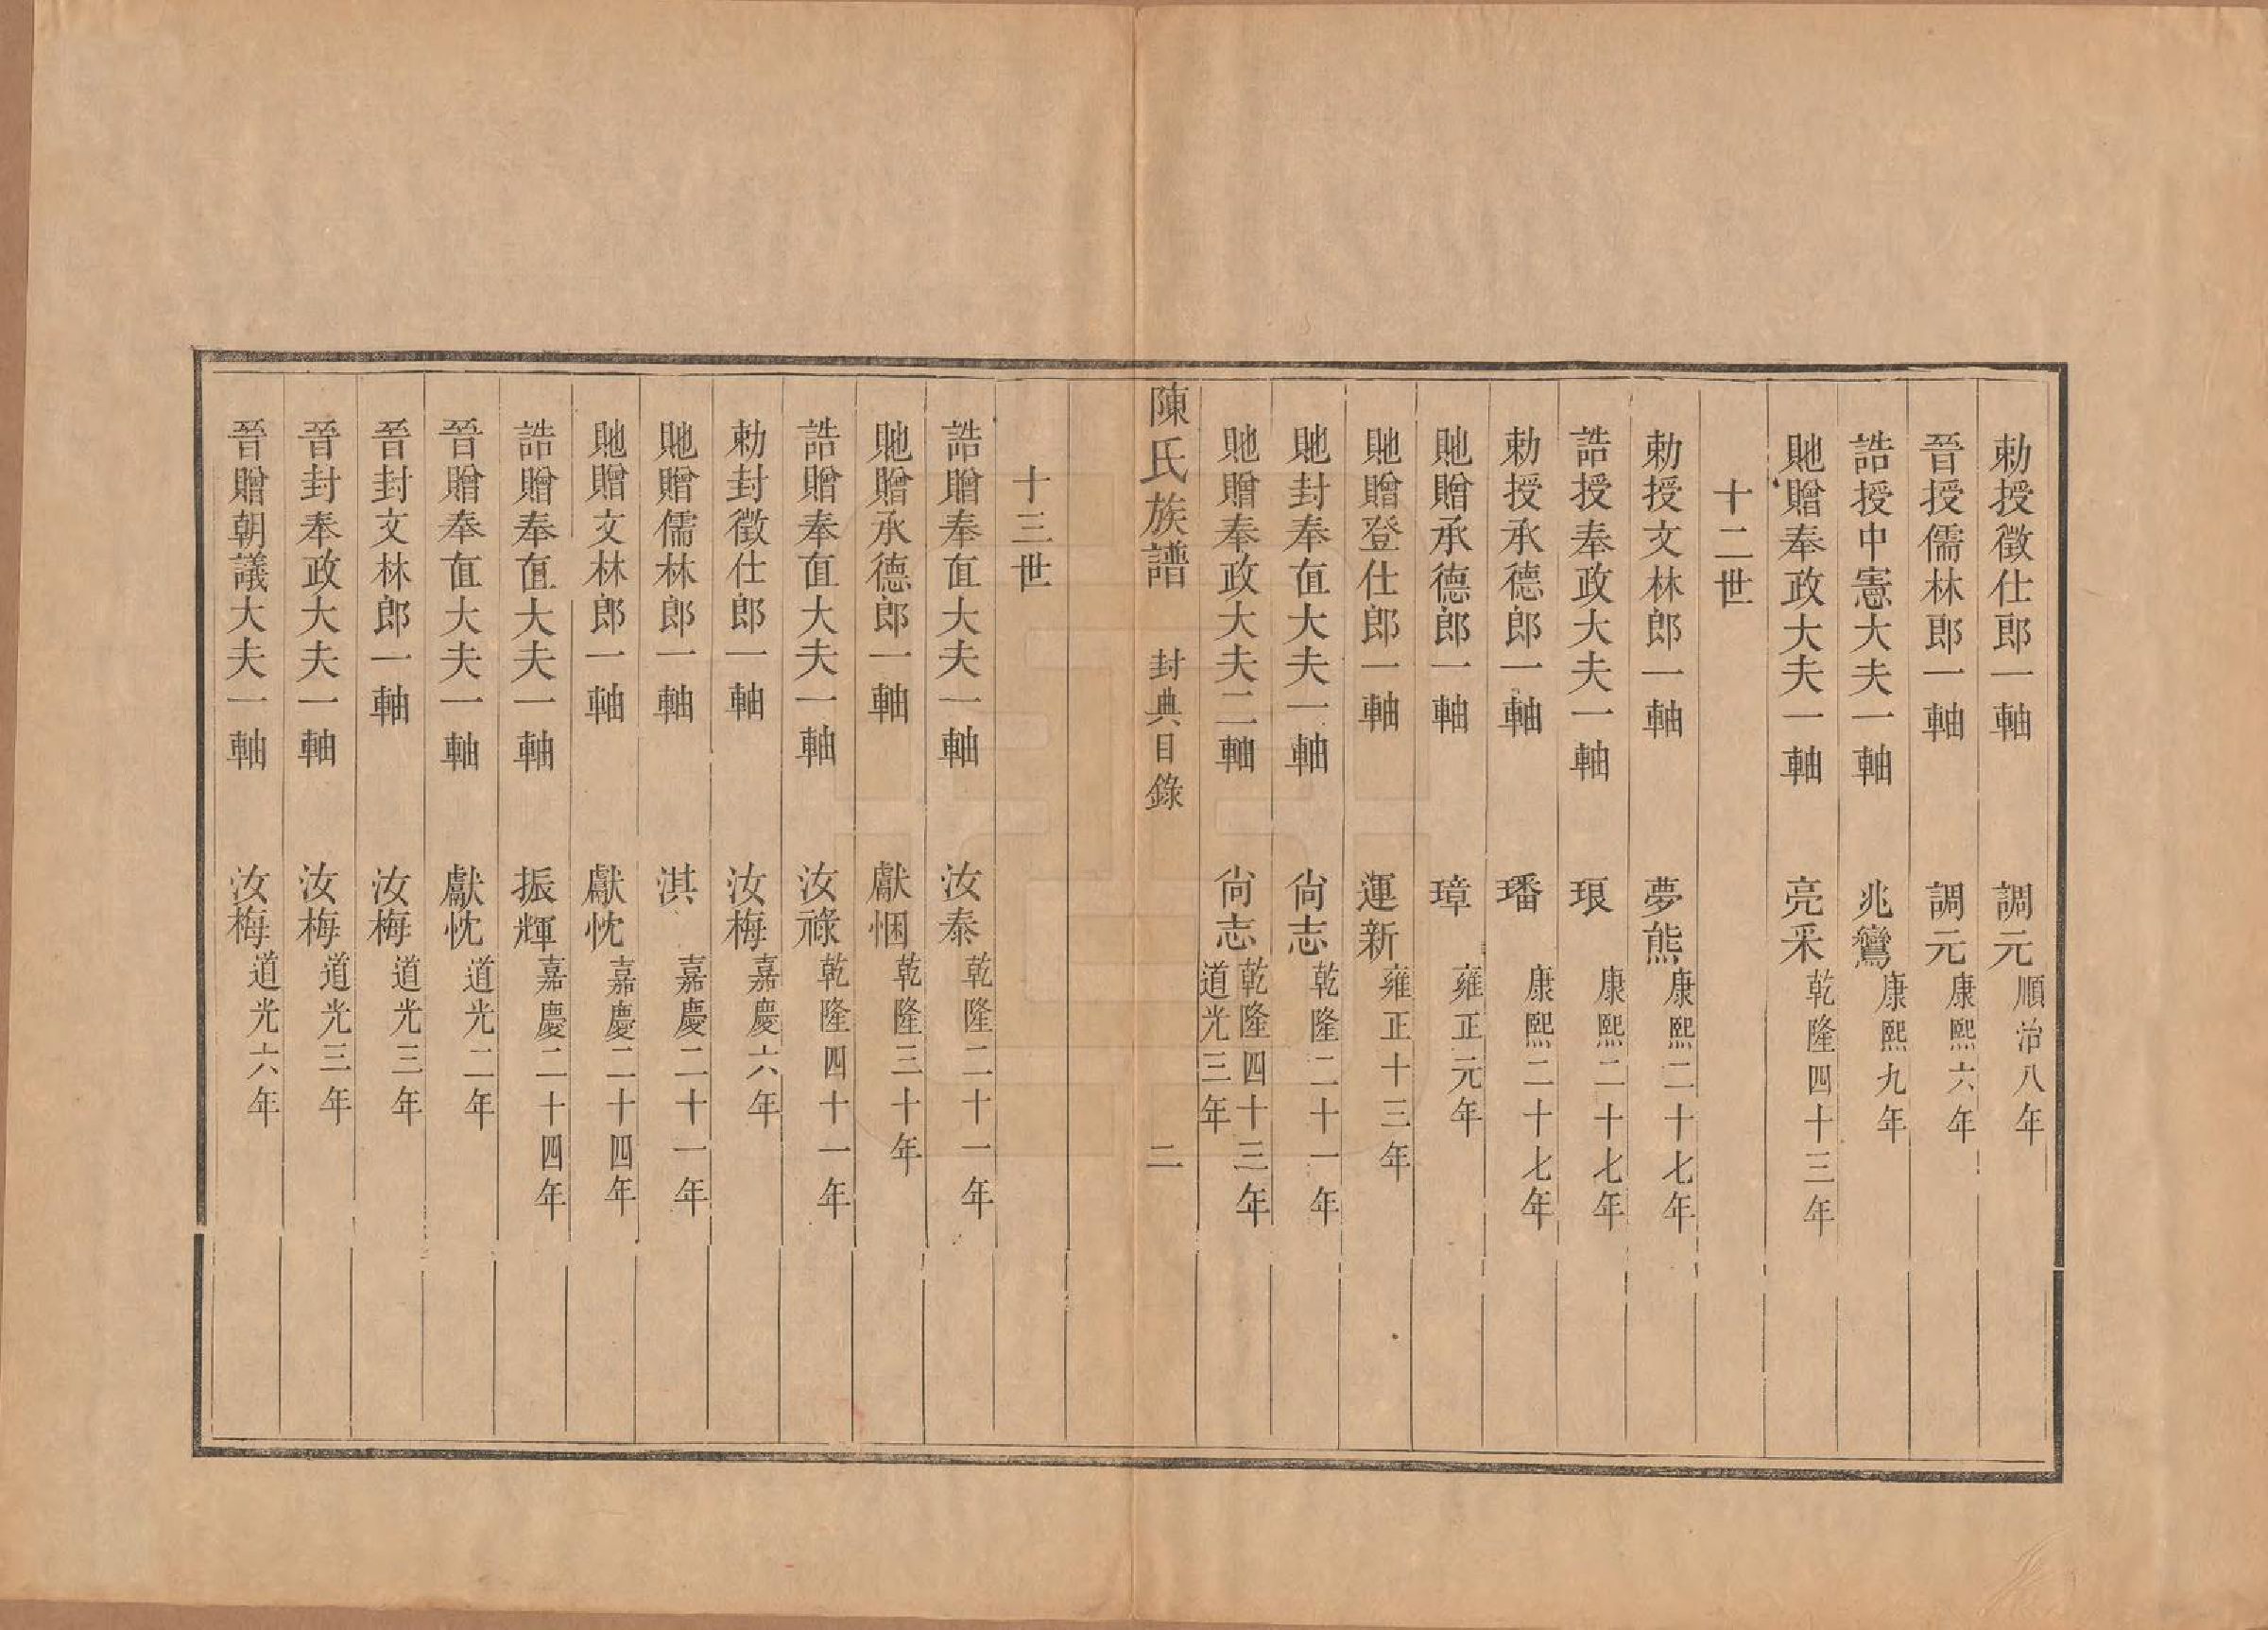 勅授徵仕郎一軸 調元 順治八年
晉授儒林郎一軸 調元 康熙六年
誥授中憲大夫一軸 兆鸞 康熙九年
貤贈奉政大夫一軸 亮采 乾隆四十三年
十二世
勅授文林郎一軸 夢熊 康熙二十七年
誥授奉政大夫一軸 琅 康熙二十七年
勅授承德郎一軸 璠 康熙二十七年
貤贈承德郎一軸 璋 雍正元年
貤贈登仕郎一軸 運新 雍正十三年
貤封奉直大夫一軸 尙志 乾隆二十一年
貤贈奉政大夫二軸 尙志 乾隆四十三年
道光三年
陳氏族譜 封典目錄 二
十三世
誥贈奉直大夫一軸 汝泰 乾隆二十一年
貤贈承德郎一軸 獻悃 乾隆三十年
誥贈奉直大夫一軸 汝祿 乾隆四十一年
勅封徵仕郎一軸 汝梅 嘉慶六年
貤贈儒林郎一軸 淇 嘉慶二十一年
貤贈文林郎一軸 獻忱 嘉慶二十四年
誥贈奉直大夫一軸 振輝 嘉慶二十四年
晉贈奉直大夫一軸 獻忱 道光二年
晉封文林郎一軸 汝梅 道光三年
晉封奉政大夫一軸 汝梅 道光三年
晉贈朝議大夫一軸 汝梅 道光六年